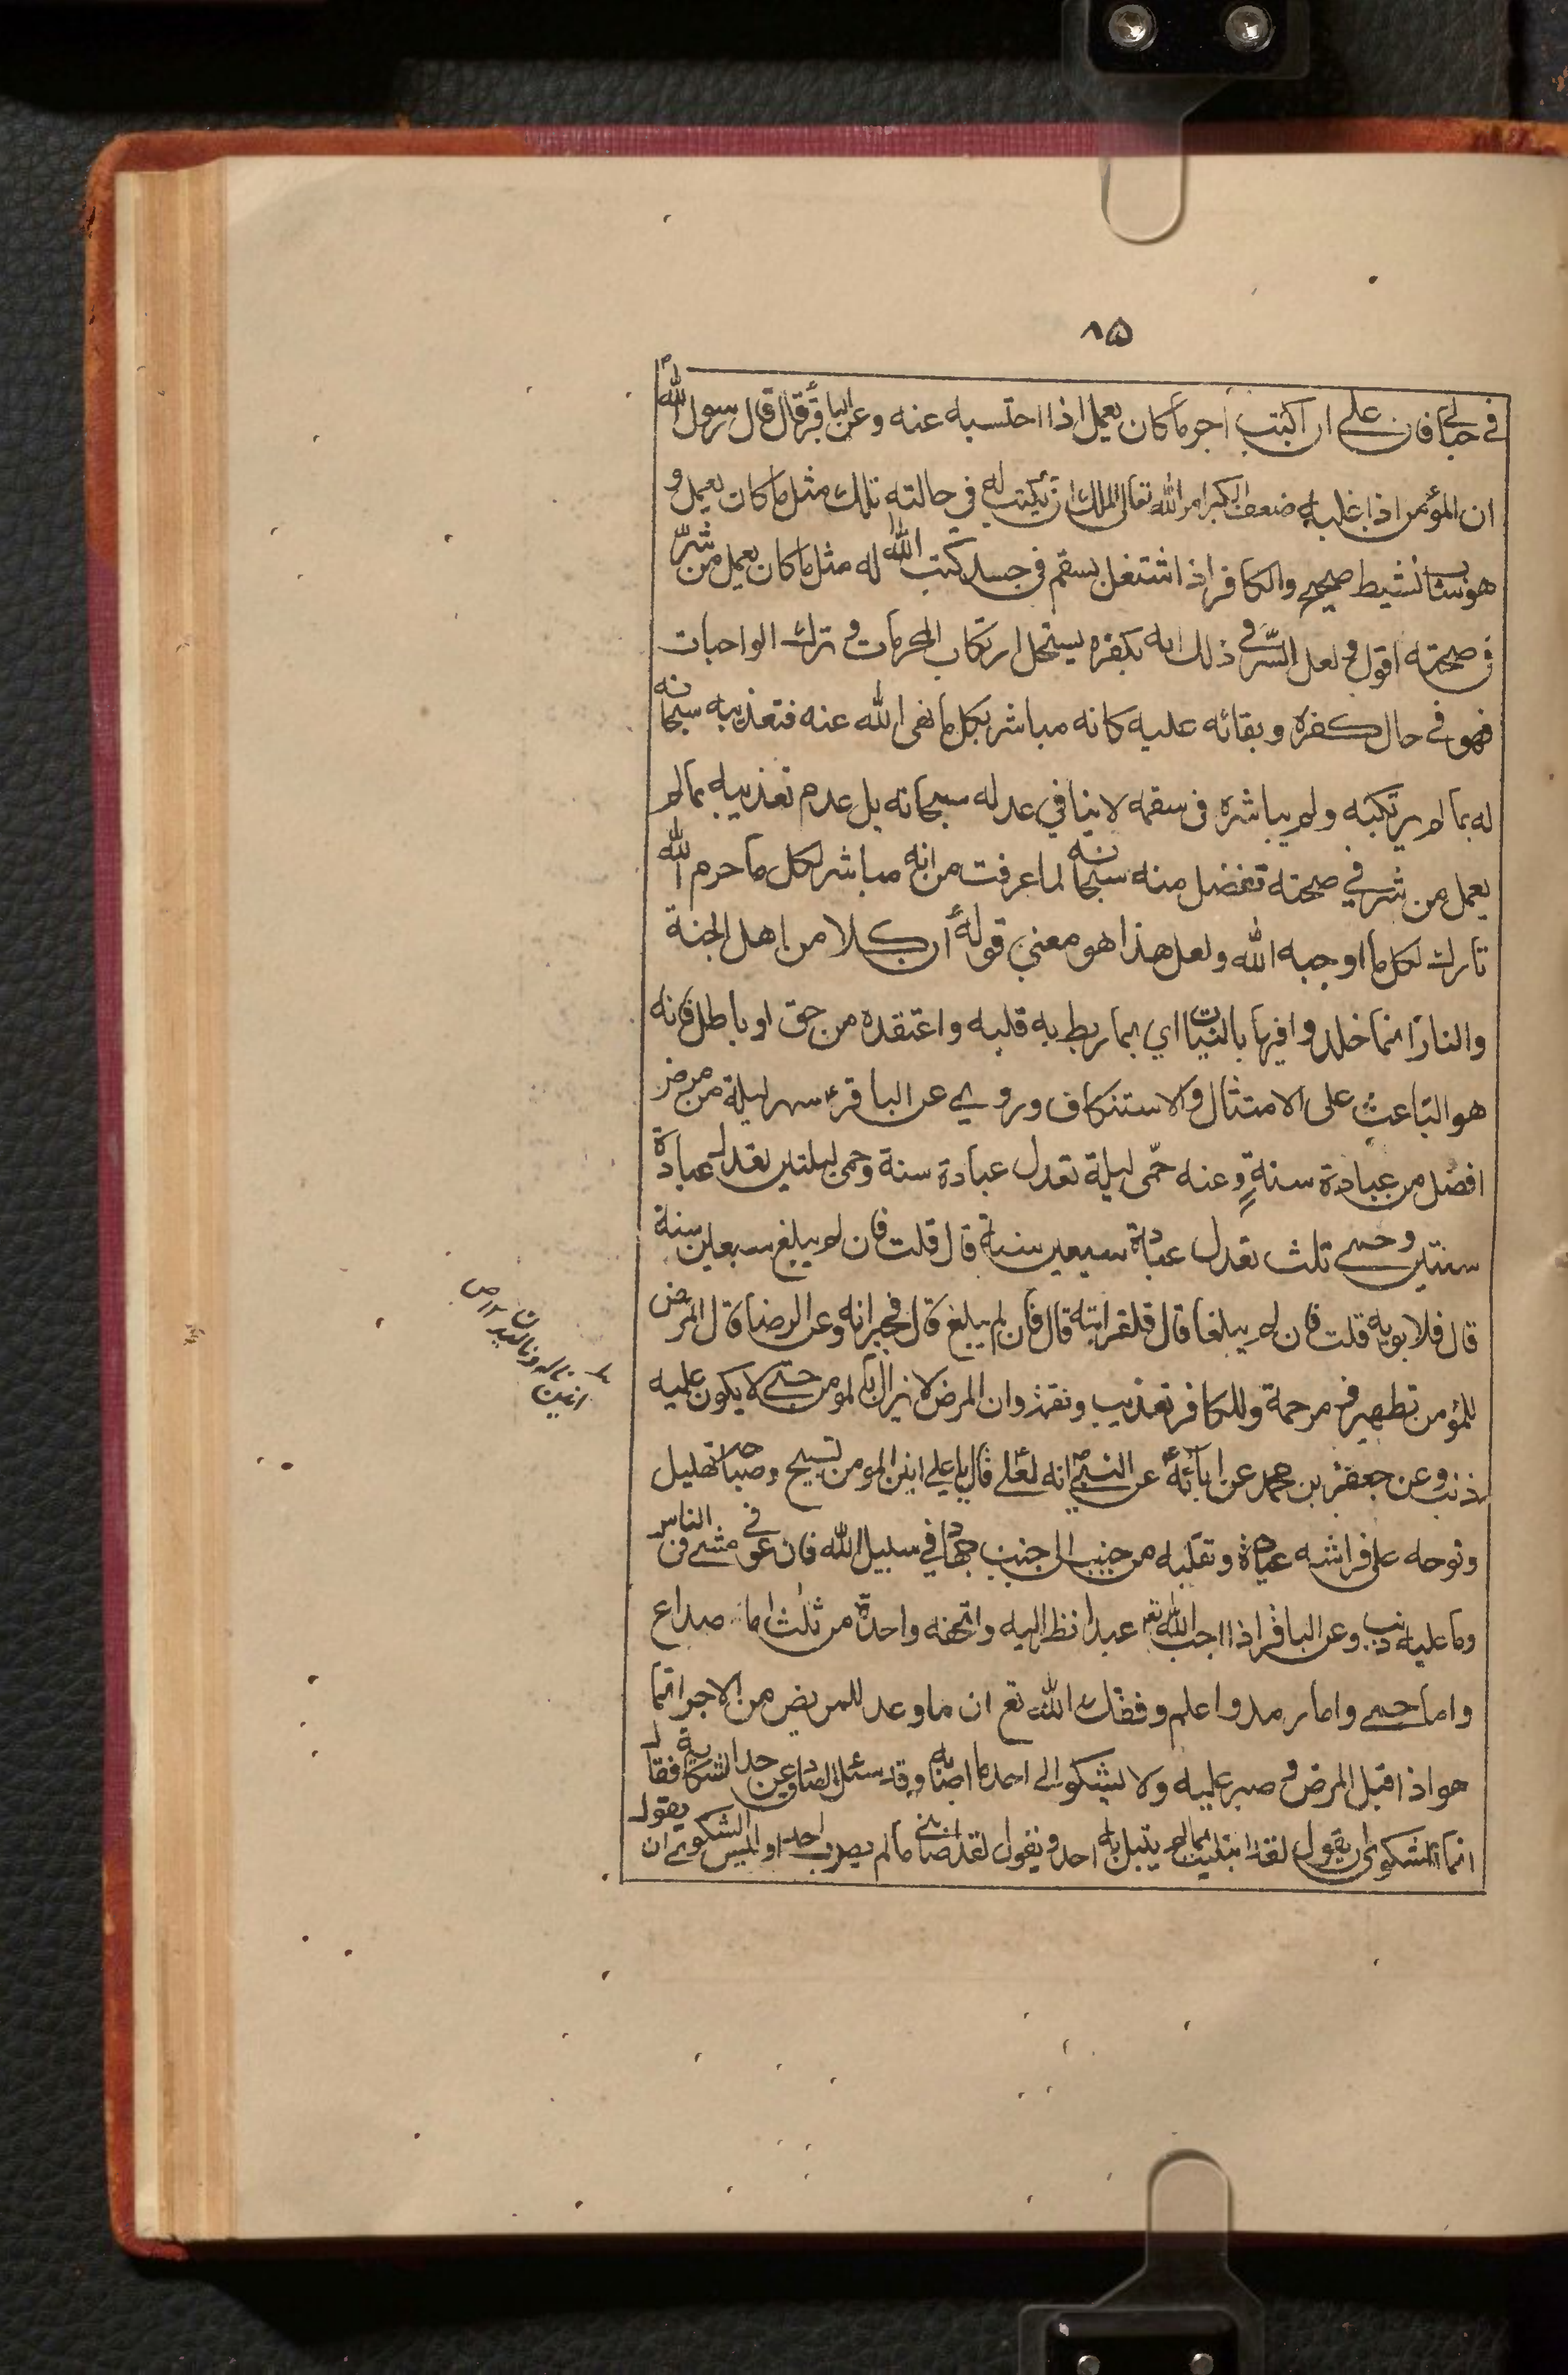 ٨٥
في حبالي فان علي ان اكتب اجر ما كان يعمل اذا احتسبه عنه وعن الباقرؑ قال قال رسول اللهؐ
ان المؤمن اذا غلبه ضعف الكبر امر الله تعالى الملك ان يكتب له في حالته تلك مثل ما كان يعمل و
هو شاب نشيط صحيح والكافر اذا اشتغل بسقم في جسده كتب الله له مثل ما كان يعمل من شرّ
في صحته اقول و لعل السّر في ذلك انه بكفره يستحل ارتكاب المحرمات و ترك الواجبات
فهو في حال كفره و بقائه عليه كانه مباشر بكل ما نهى الله عنه فتعذيبه سبحانه
له بما لم يرتكبه و لم يباشره في سقمه لا ينافي عدله سبحانه بل عدم تعذيبه بما لم
يعمل من شر في صحته تفضل منه سبحانه لما عرفت من انه مباشر لكل ما حرم الله
تارك لكل ما اوجبه الله ولعل هذا هو معنى قولهؑ ان كلا من اهل الجنة
والنار انما خلدوا فيها بالنيات اي بما ربط به قلبه و اعتقده من حق او باطل فانه
هو الباعث على الامتثال و الاستنكاف و روي عن الباقرؑ سهر ليلة من مرض
افضل من عبادة سنةٍ و عنه حمّى ليلة تعدل عبادة سنة وحمى ليلتين تعدل عبادة
سنتين و حمى ثلث تعدل عبادة سبعين سنة قال قلت فان لم يبلغ سبعين سنة
قال فلابويه قلت فان لم يبلغا قال فلقرابته قال فان لم يبلغ قال فجيرانه وعن الرضا قال المرض
للمؤمن تطهير و رحمة وللكافر تعذيب و نقمة وان المرض لا يزال بالمومن حتى لا يكون عليه
ذنب وعن جعفر بن محمد عن آبائهؑ عن النبيؐ انه لعلي قال يا علي انين المومن تسبيح و صياحه تهليل
ونومه على فراشه عبادة و تقلبه من جنب الى جنب جهاد في سبيل الله فان عوفي مشى في الناس
وما عليه ذنب وعن الباقر اذا احب الله تعـ عبدا نظر اليه واتحفه واحدة من ثلث اما صداع
واما حمى واما رمد واعلم وفقك الله تعـ ان ما وعد للمريض من الاجر انما
هو اذا قبل المرض و صبر عليه ولا يشكو الى احد ما اصابه وقد سئل الصادق عن حد الشكاية فقال
انما الشكوى ان يقول لقد ابتليت بما لم يبتل به احد و يقول لقد اصابني ما لم يصب احدا و ليس الشكوى ان يقول
انين
ناله و ناليدن
١٢ ص